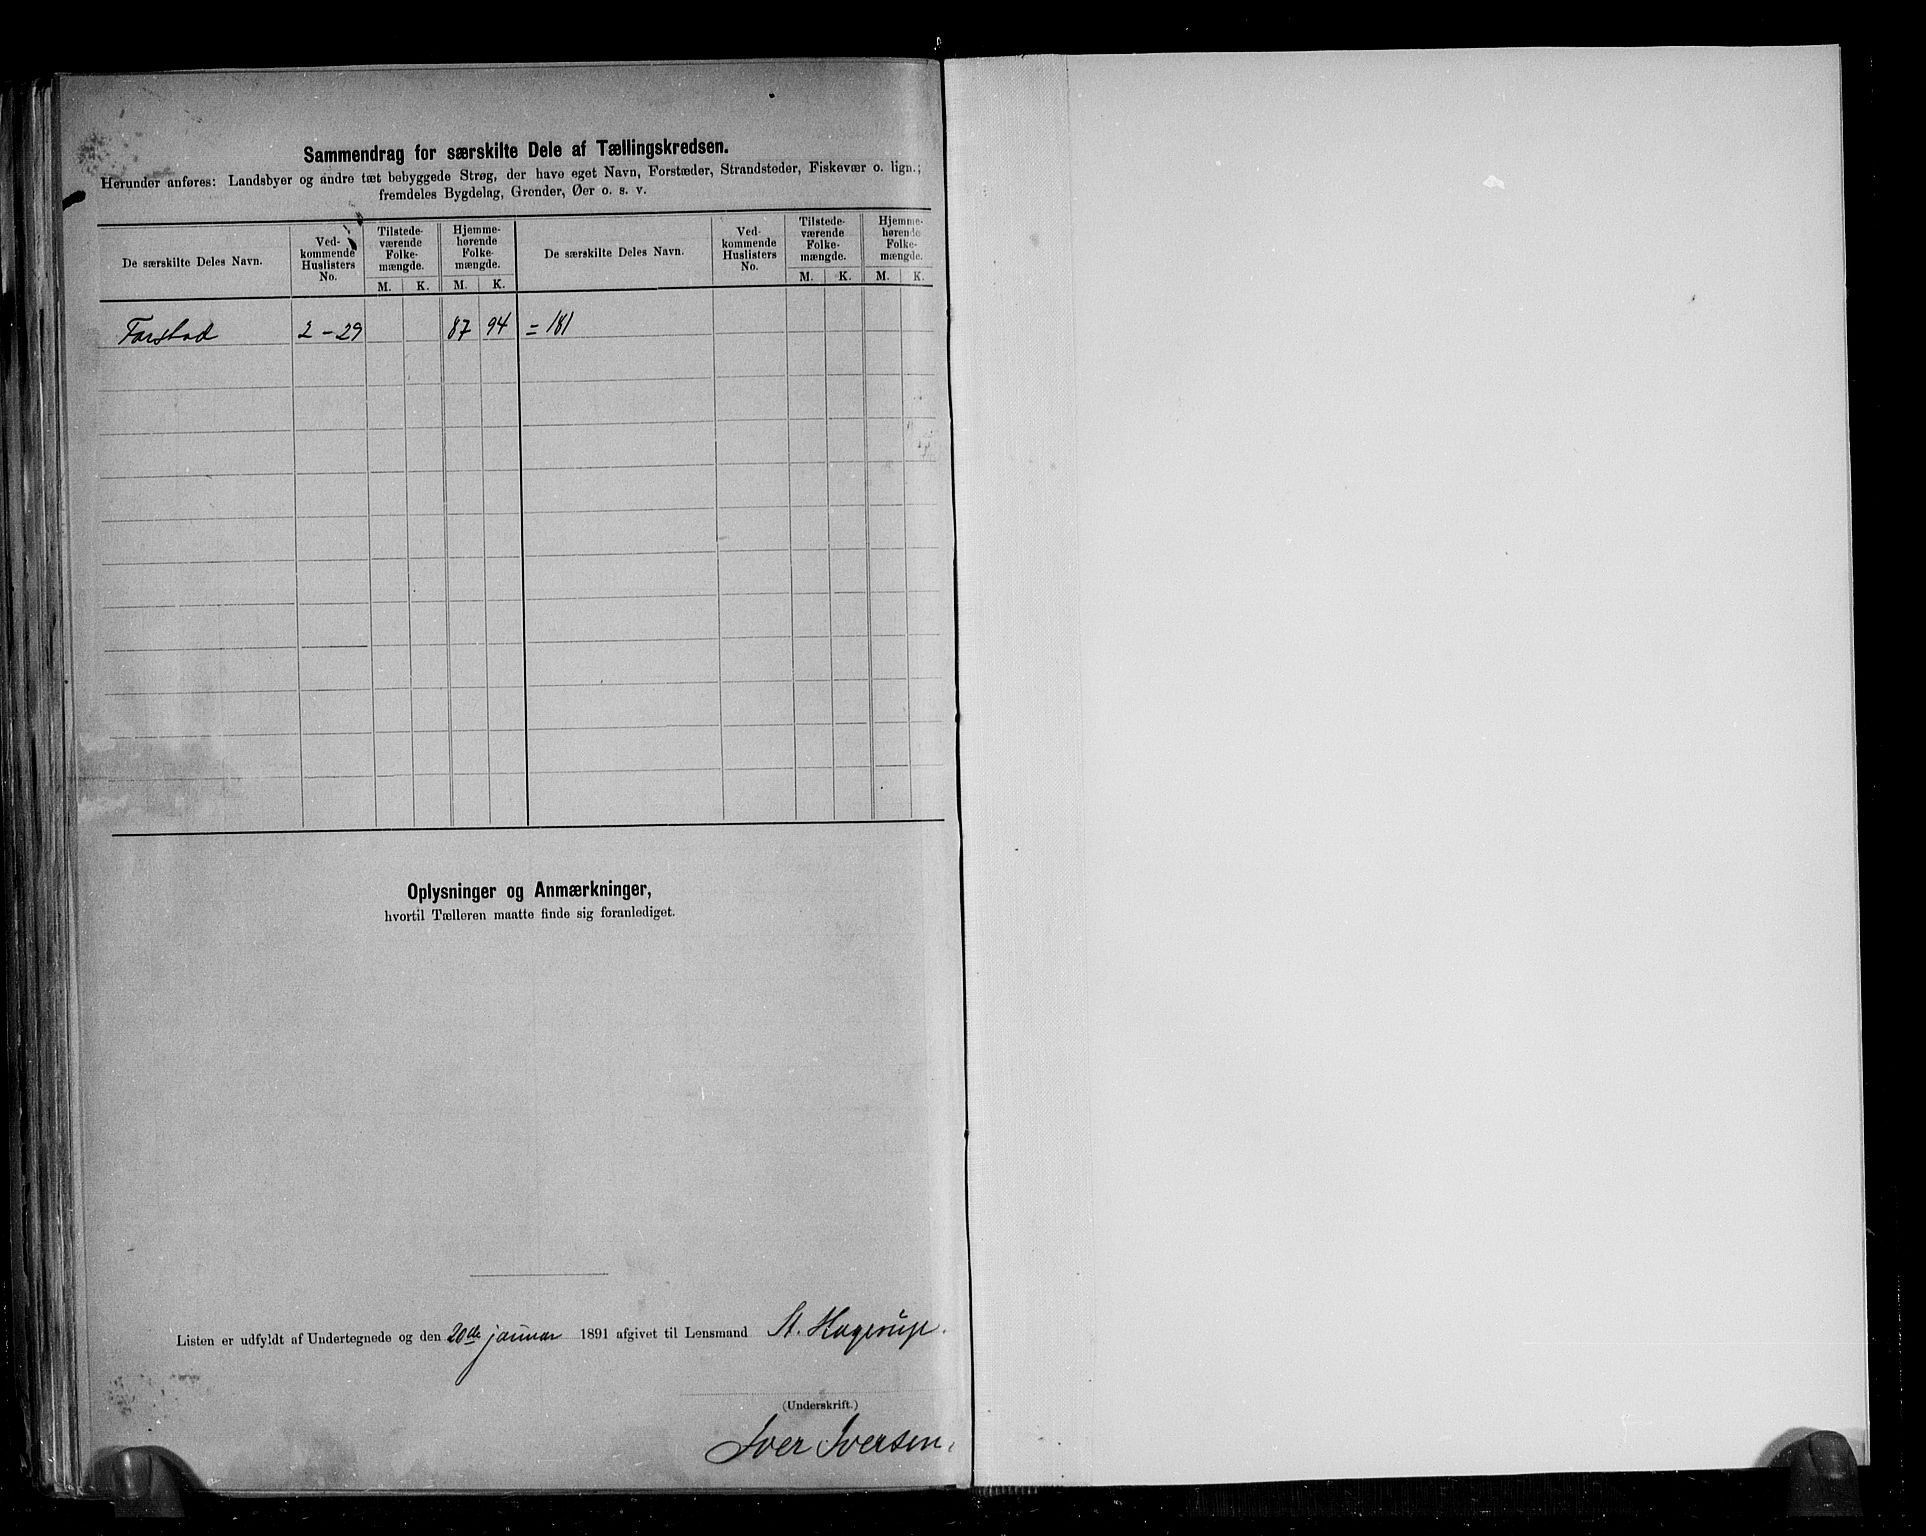 Sammendrag for særskilte Dele af Tællingskredsen.
Herunder anføres: Landsbyer og andre tæt bebyggede Strøg, der have eget Navn, Forstæder, Strandsteder, Fiskevær o. lign.;
fremdeles Bygdelag, Grender, Øer o. s. v.
De særskilte Deles Navn.
Ved-
kommende
Huslisters
No.
Tilstede-
værende
Folke-
mængde.
M. K.
Hjemme-
hørende
Folke-
mængde.
M. K.
De særskilte Deles Navn.
Ved-
kommende
Huslisters
No.
Tilstede-
værende
Folke-
mængde.
M. K.
Hjemme-
hørende
Folke-
mængde.
M. K.
Farstad 2 - 29 87 94 = 181
Oplysninger og Anmærkninger,
hvortil Tælleren maatte finde sig foranlediget.
Listen er udfyldt af Undertegnede og den 20de januar 1891 afgivet til Lensmand St. Hagerup.
(Underskrift.)
Iver Iversen.